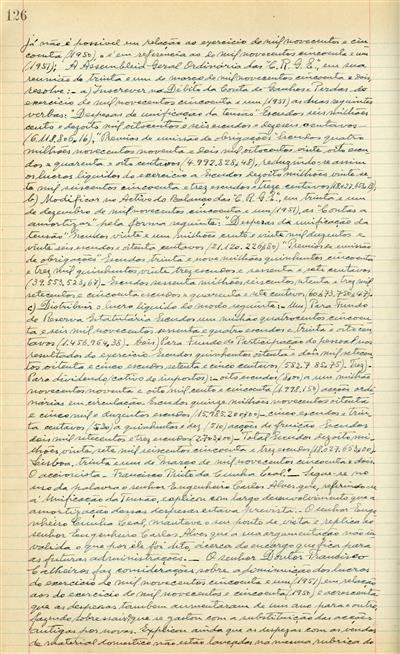 126
já não é possivel em relação ao exercicio de mil novecentos e cin-
coenta (1950) e é em referencia ao de mil novecentos cincoenta e um
(1951); A Assembleia Geral Ordinária das "C. R. G. E.", em sua
reunião de trinta e um de março de mil novecentos cincoenta e dois
resolve: - a) Inscrever no Débito da Conta de Ganhos e Perdas do
exercicio de mil novecentos cincoenta e um (1951) as duas seguintes
verbas: "Despesas de unificação da tensão" Escudos seis milhões
cento e dezoito mil oitocentos e seis escudos e dezeseis centavos -
(6.118.806,16), "Premios de emissão de obrigações" Escudos quatro
milhões novecentos noventa e dois mil oitocentos vinte oito escu-
dos e quarenta e oito centavos (4.992.828,48), reduzindo-se assim
os lucros liquidos do exercicio a Escudos dezoito milhões vinte se-
te mil seiscentos cincoenta e tres escudos e treze centavos
b) Modificar no Activo do Balanço das "C. R. G. E.", em trinta e um
de dezembro de mil novecentos cincoenta e um (1951), as "Contas a
amortizar" pela forma seguinte: Despesas da unificação da
tensão "Escudos, vinte e um milhões cento e vinte mil duzentos e
vinte seis escudos e oitenta centavos (21.120.226,80) "Premios de emissão
de obrigações" Escudos trinta e nove milhões quinhentos cincoenta
e tres mil quinhentos vinte tres escudos e sessenta e sete centavos
(39.553.523,67) - Escudos sessenta milhões seiscentos setenta e tres mil
setecentos e cincoenta escudos e quarenta e sete centavos (60.673.750,47)
c) Distribuir o lucro liquido do modo seguinte: - Um) Para Fundo
de Reserva Estatutária Escudos um milhão quatrocentos cincoen-
ta e seis mil novecentos sessenta e quatro escudos e trinta e oito cen-
tavos (1.456.964,38) Dois) Para Fundo de Participação do pessoal nos
resultados do exercicio Escudos quinhentos oitenta e dois mil setecen-
tos oitenta e cinco escudos setenta e cinco centavos (582.785,75), Tres)
Para dividendo (cativo de impostos) - oito escudos (8,00) a um milhão
novecentos noventa e oito mil cento e cincoenta (1.998.150) acções ordi-
nárias em circulação, Escudos quinze milhões novecentos oitenta
e cinco mil e duzentos escudos (15.985.200,00) - cinco escudos e trin-
ta centavos (5,30) a quinhentos e dez (510) acções de fruição Escudos
dois mil setecentos e tres escudos (2.703,00) - Total Escudos dezoito mi-
lhões vinte sete mil seiscentos cincoenta e tres escudos
Lisboa, trinta e um de Março de mil novecentos cincoenta e dois.
O accionista - Francisco Pinto da Cunha Leal. - Segue-se no
uso da palavra o senhor Engenheiro Carlos Alves que, referindo-se
á Unificação da Tensão, explicou com largo desenvolvimento que a
amortização dessas despesas estava prevista. - O senhor Enge-
nheiro Cunha Leal, manteve o seu ponto de vista e replica ao
senhor Engenheiro Carlos Alves que a sua argumentação não in-
valida o que por ele foi dito, ácerca do encargo que fica para
as futuras administrações. - O senhor Doutor
Calheiros faz considerações sobre a diminuição dos lucros
do exercicio de mil novecentos cincoenta e um (1951) em relação
aos do exercicio de mil novecentos e cincoenta (1950) e acrescenta
que as despesas tambem aumentaram de um ano para o outro,
fazendo sobressair que se gastou com a substituição das acções
antigas por novas. Explicou ainda que as despezas com as vendas
de material domestico não estão lançadas na mesma rubrica do